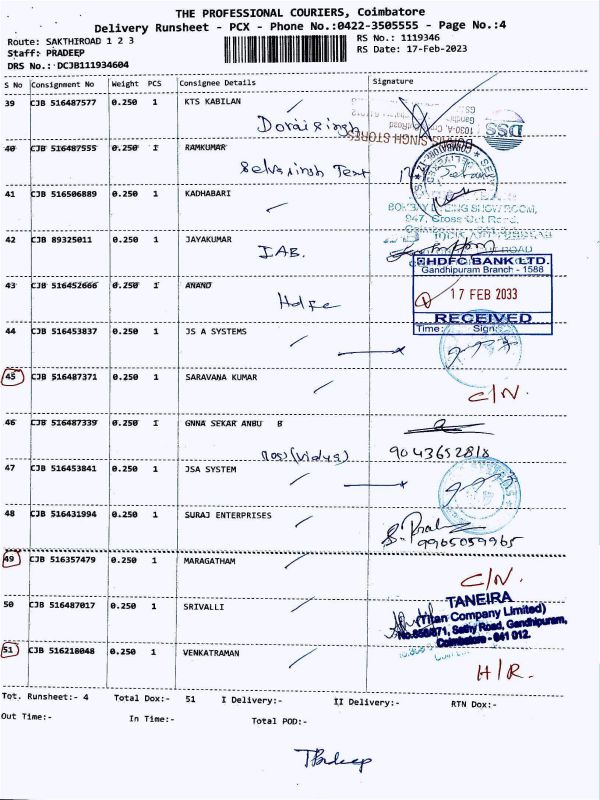 THE PROFESSIONAL COURIERS, Coimbatore
Delivery Runsheet - PCX - Phone No.:0422-3505555 - Page No.:4
Route: SAKTHIROAD 1 2 3
RS No.: 1119346
Staff: PRADEEP
RS Date: 17-Feb-2023
DRS No.: DCJB111934604
S No Consignment No Weight PCS Consignee Details Signature
39 CJB 516487577 0.250 1 KTS KABILAN
Doraisingh
DSS
40 CJB 516487555 0.250 1 RAMKUMAR
Selvasingh Text
41 CJB 516506889 0.250 1 KADHABARI
BOMBAY DYEING SHOWROOM,
947, Cross Cut Road,
42 CJB 89325011 0.250 1 JAYAKUMAR
IAB.
HDFC BANK LTD.
Gandhipuram Branch - 1588
43 CJB 516452666 0.250 1 ANAND
Hdfc
17 FEB 2033
RECEIVED
Time: Sign:
44 CJB 516453837 0.250 1 JS A SYSTEMS
45 CJB 516487371 0.250 1 SARAVANA KUMAR
C/N.
46 CJB 516487339 0.250 1 GNNA SEKAR ANBU B
(Vidya)
9043652818
47 CJB 516453841 0.250 1 JSA SYSTEM
48 CJB 516431994 0.250 1 SURAJ ENTERPRISES
9965059965
49 CJB 516357479 0.250 1 MARAGATHAM
C/N.
50 CJB 516487017 0.250 1 SRIVALLI
TANEIRA
(Titan Company Limited)
No.856/871, Sathy Road, Gandhipuram,
Coimbatore - 641 012.
51 CJB 516218048 0.250 1 VENKATRAMAN
H/R.
Tot. Runsheet:- 4 Total Dox:- 51 I Delivery:- II Delivery:- RTN Dox:-
Out Time:- In Time:- Total POD:-